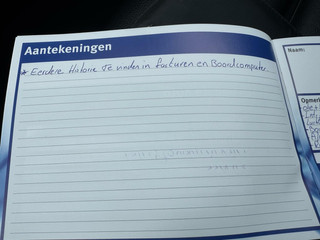 Aantekeningen
* Eerdere Historie Te vinden in facturen en Boordcomputer.
Naam:
Opmerk